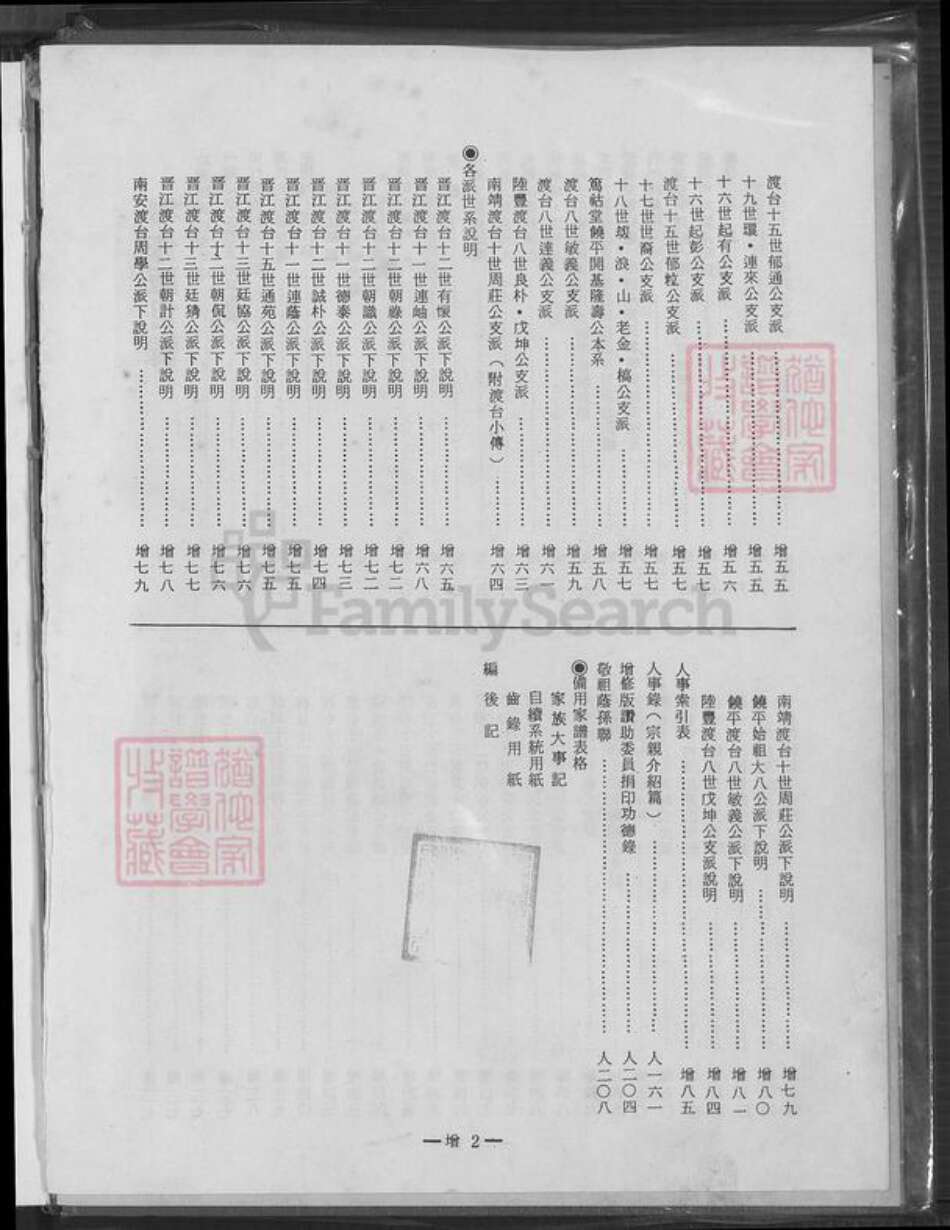 渡台十五世郁通公支派……增五五
十九世環•連來公支派……增五五
十六世起有公支派……增五六
十六世起彭公支派……增五七
渡台十五世郁粒公支派……增五七
十七世世裔公支派……增五七
十八世㘰•浪•山•老金•槁公支派……增五七
篤祜堂饒平開基隆壽公本系……增五八
渡台八世敏義公支派……增五九
渡台八世達義公支派……增六一
陸豐渡台八世良朴•戊坤公支派……增六三
南靖渡台十世周莊公支派（附渡台小傳）……增六四
◉各派世系說明
晋江渡台十二世有懷公派下說明……增六五
晋江渡台十一世連岫公派下說明……增六八
晋江渡台十二世朝祿公派下說明……增七二
晋江渡台十二世朝識公派下說明……增七二
晋江渡台十一世德泰公派下說明……增七三
晋江渡台十二世誠朴公派下說明……增七四
晋江渡台十一世連蔭公派下說明……增七五
晋江渡台十五世通苑公派下說明……增七五
晋江渡台十三世廷協公派下說明……增七六
晋江渡台十二世朝侃公派下說明……增七六
晋江渡台十三世廷猜公派下說明……增七七
晋江渡台十二世朝計公派下說明……增七八
南安渡台周學公派下說明……增七九
南靖渡台十世周莊公派下說明……增七九
饒平始祖大八公派下說明……增八〇
饒平渡台八世敏義公派下說明……增八一
陸豐渡台八世戊坤公支派說明……增八四
人事索引表……增八五
人事錄（宗親介紹篇）……人一六一
增修版讚助委員捐印功德錄……人二〇四
敬祖蔭孫聯……人二〇八
◉備用家譜表格
家族大事記
自續系統用紙
齒錄用紙
編後記
—增 2—
FamilySearch